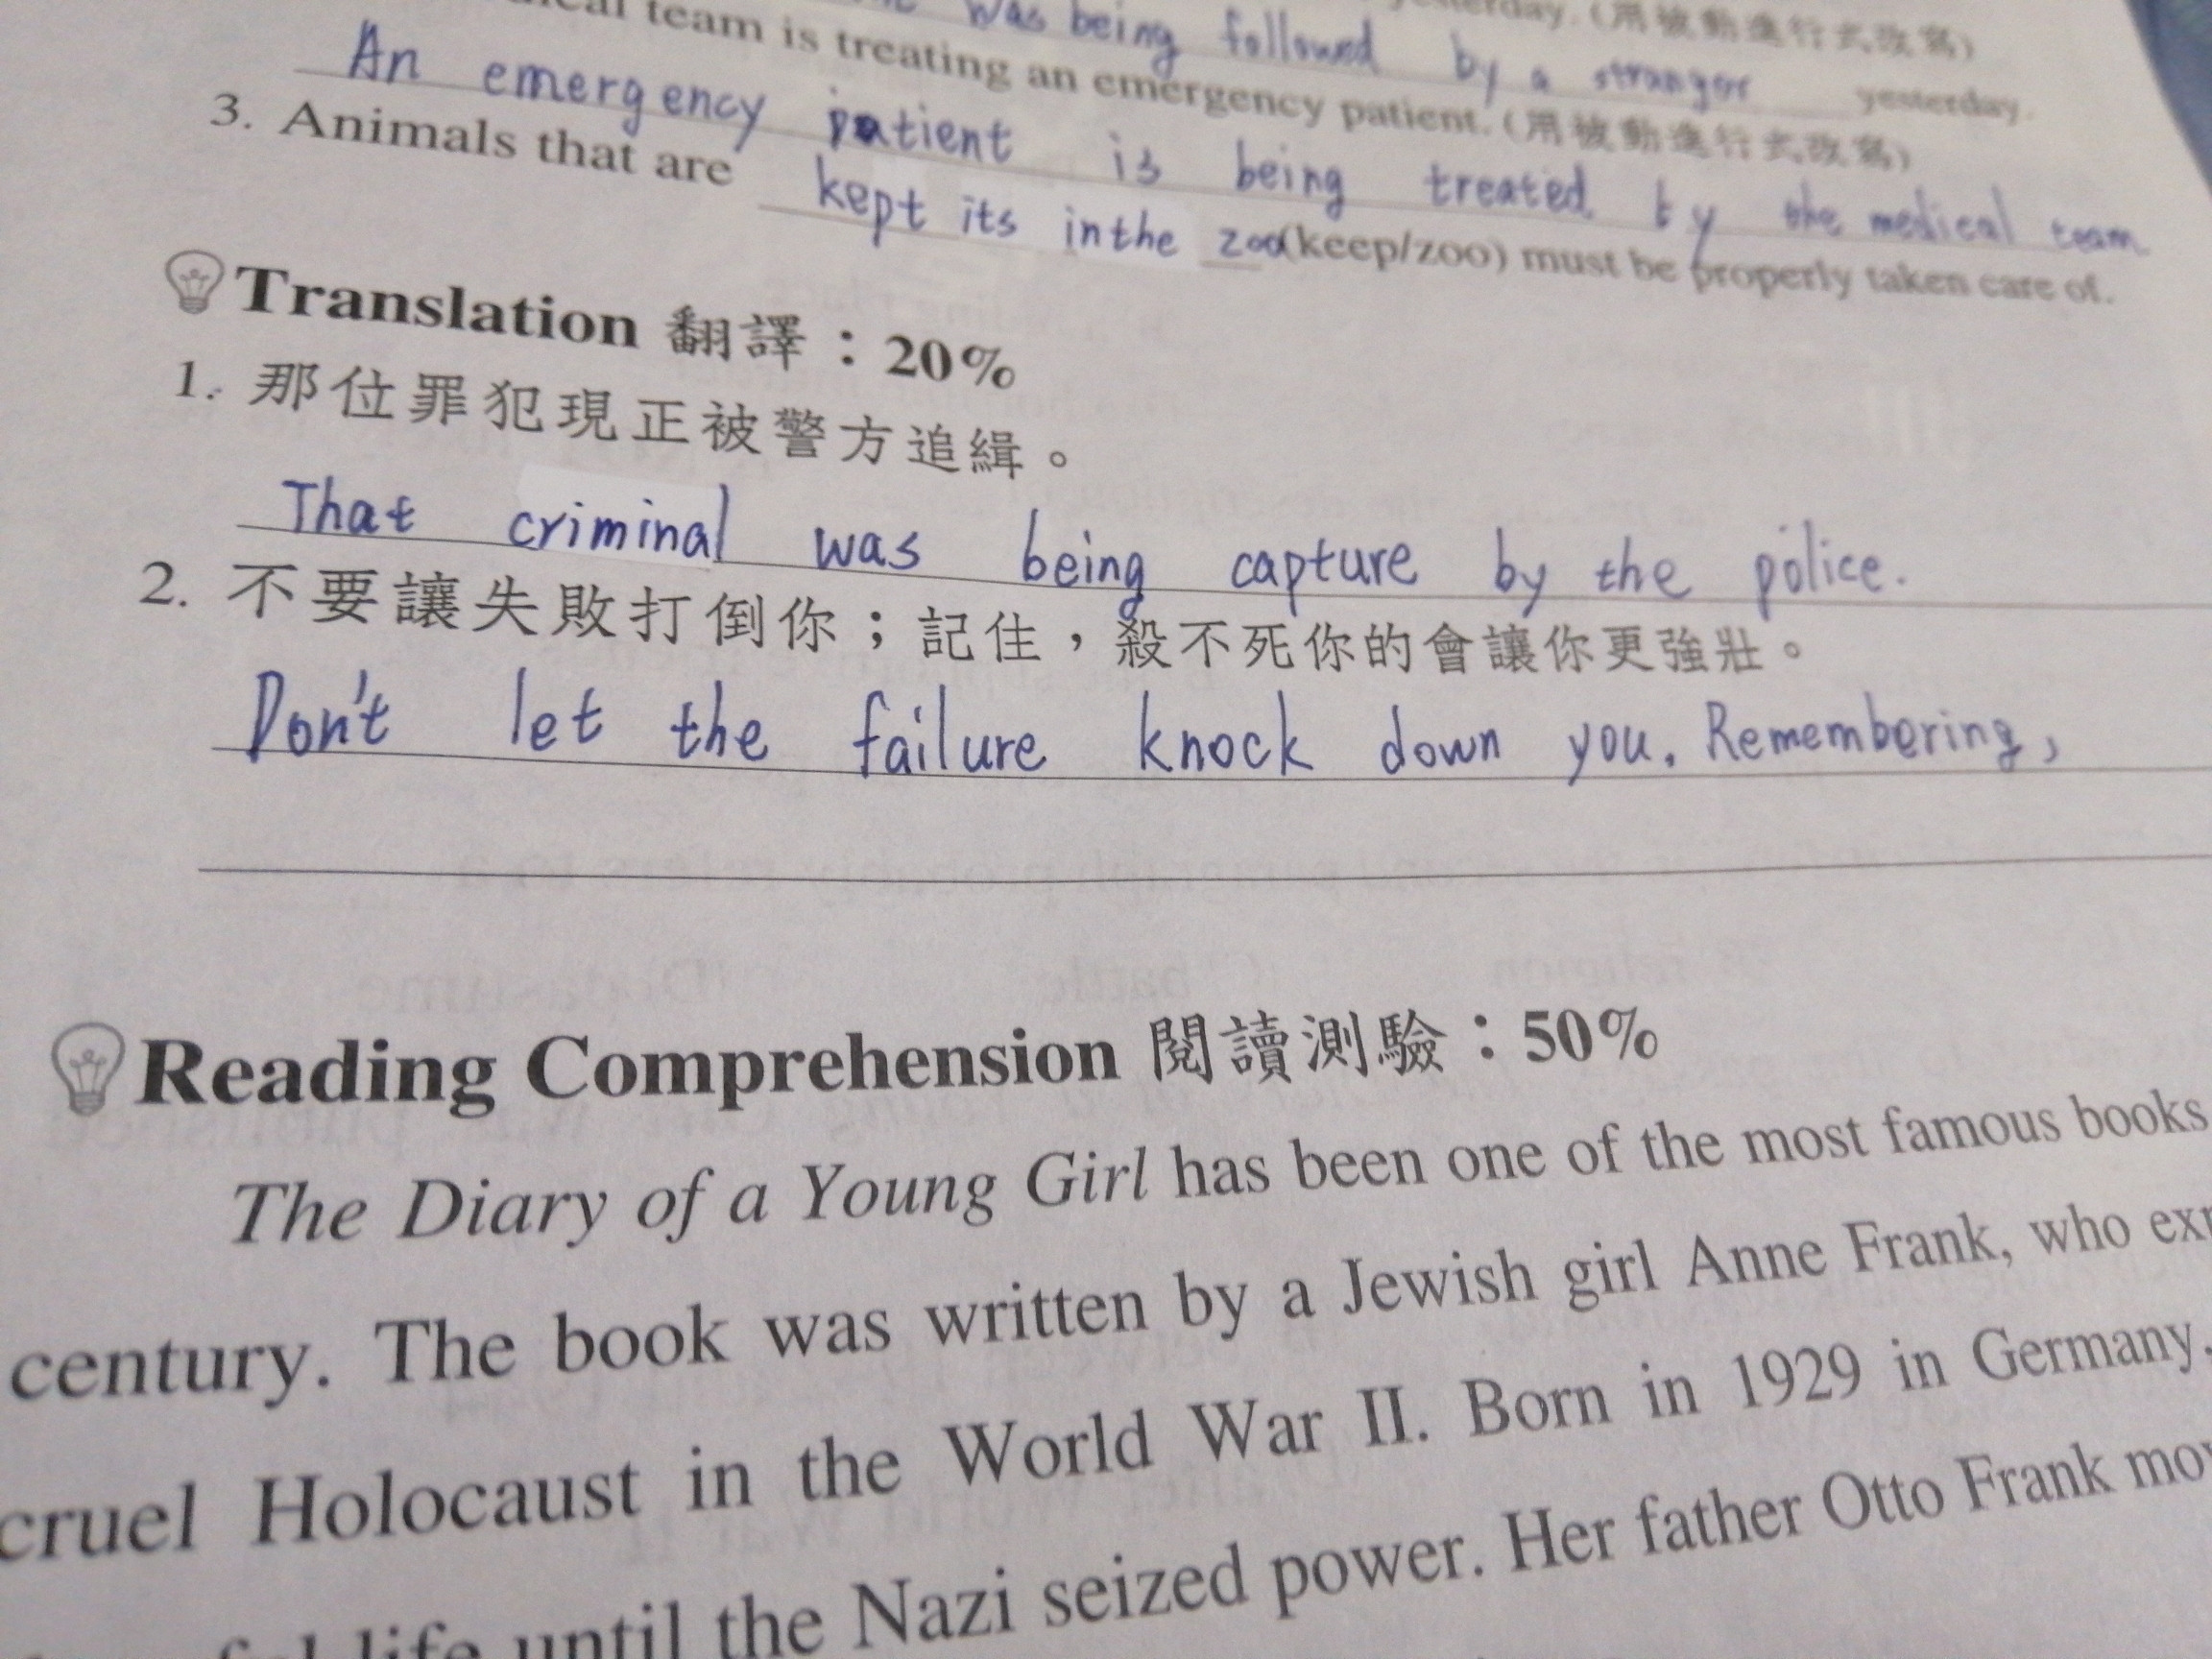 was being followed by a stranger yesterday.
team is treating an emergency patient. (用被動進行式改寫)
An emergency patient is being treated by the medical team
3. Animals that are kept its in the zoo (keep/zoo) must be properly taken care of.
Translation 翻譯：20%
1. 那位罪犯現正被警方追緝。
That criminal was being capture by the police.
2. 不要讓失敗打倒你；記住，殺不死你的會讓你更強壯。
Don't let the failure knock down you. Remembering,
Reading Comprehension 閱讀測驗：50%
The Diary of a Young Girl has been one of the most famous books
century. The book was written by a Jewish girl Anne Frank, who
cruel Holocaust in the World War II. Born in 1929 in Germany,
life until the Nazi seized power. Her father Otto Frank